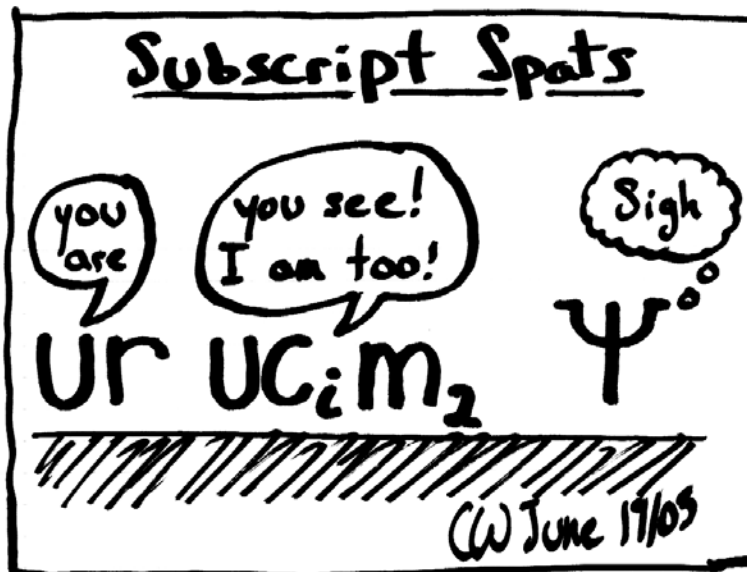 Subscript Spats
you
are
you see!
I am too!
Sigh
Ur UCᵢm₂ Ψ
CW June 19/05